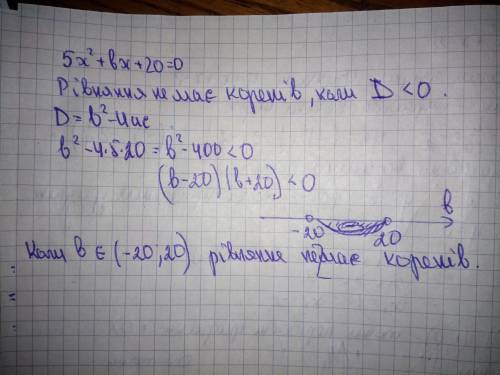 5x²+bx+20=0
Рівняння не має коренів, коли D<0.
D=b²-4ac
b²-4·5·20=b²-400<0
(b-20)(b+20)<0
b
-20 20
Коли b є (-20;20) рівняння не має коренів.